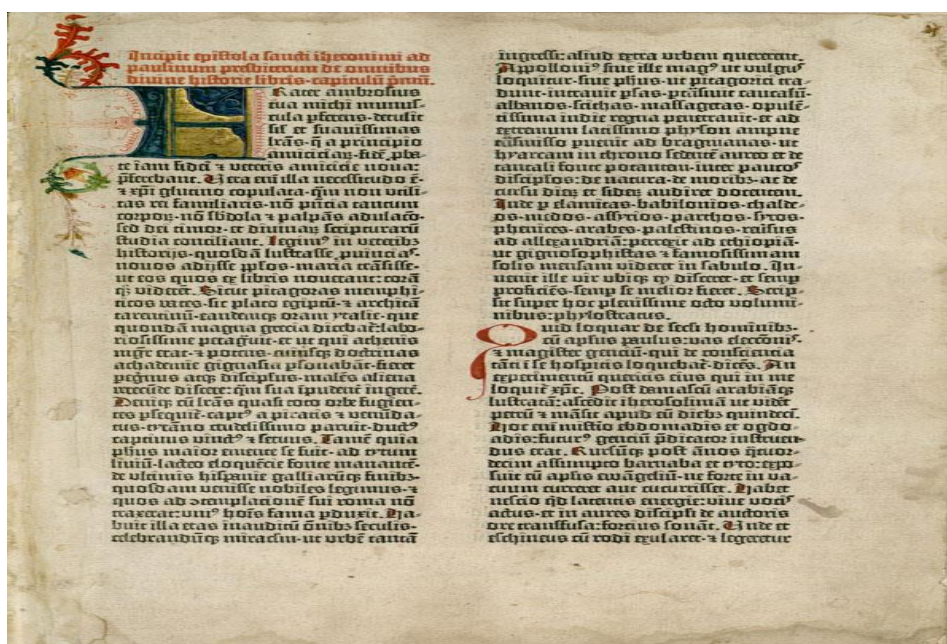 Incipit epistola sancti iheronimi ad
paulinum presbiterum de omnibus
divine historie libris-capitulū pmū.
Frater ambrosius
tua michi munus-
cula pferens-detulit
sił et suavissimas
lrās-q̄ a principio
amiciciaꝝ-fidē pba-
te iam fidei ⁊ veteris amicicie nova:
pferebant. Vera eni illa necessitudo ē-
⁊ xpī glutino copulata-qm non utili-
tas rei familiaris-nō pntia tantum
corpoꝝ-nō sbdola ⁊ palpās adulacō-
sed dei timor-et divinaꝝ scripturarū
studia conciliant. Legimꝰ in veteribꝫ
historijs-quosdā lustrasse ꝓvinciaˢ-
novos adijsse pplos-maria trāsisse-
ut eos quos ex libris noverant: corā
qꝫ viderēt. Sicut pitagoras memphi-
ticos vates-sic plato egiptū-⁊ architā
tarentinū-eandemqꝫ oram ytalie-que
quondā magna grecia dicebaꞇ̃: labo-
riosissime peragravit-et ut qui athenis
mgr̄ erat-⁊ potens-cuiusqꝫ doctrinas
achademie gignasia psonabāt-fieret
pegrinus atqꝫ discipulus-malēs aliena
verecunde discere: q̄m sua īpudent̄ ingerē.
Deniqꝫ cū lrās quasi toto orbe fugien-
tes psequit̄-captꝰ a piratis ⁊ venūda-
tus-tyrāno crudelissimo paruit-ductꝰ
captivus vinctꝰ ⁊ servus. Tamē quia
phus maior emente se fuit-ad tytum
liviū-lacteo eloquētie fonte manantē-
de ultimis hispanie galliarūqꝫ finibꝫ-
quosdam venisse nobiles legimus-⁊
quos ad ɔtemplationē sui roma nō
traxerat: unīꝰ hoīs fama pduxit. Ha-
buit illa etas inauditū oībꝫ seculis-
celebrandūqꝫ miraclm-ut urbē tantā
ingressi: aliud extra urbem quererent.
Appollonīꝰ sive ille magꝰ ut vulgꝰ
loquitur-sive phus-ut pitagorici tra-
dunt-intravit psas-ptrāsivit caucasū-
albanos-scithas-massagetas-opulē-
tissima indie regna penetravit-et ad
extremum latissimo physon ampne
trāsmisso puenit ad bragmanas-ut
hyarcam in throno sedentē aureo et de
tantali fonte potantem-inter paucoˢ
discipłos-de natura-de moribꝫ-ac de
cursu dieꝝ et sideꝝ audiret docentem.
Inde p elamitas-babilonios-chalde-
os-medos-assyrios-parthos-syros-
phenices-arabes-palestinos-reversus
ad allexandriā: perrexit ad ethiopiā-
ut gignosophistas ⁊ famosissimam
solis mensam videret in sabulo. In-
venit ille vir ubiqꝫ qꝫ disceret-et semp
proficiēs-semp se melior fieret. Scrip-
sit super hoc plenissime octo volumi-
nibus: phylostratus.
Quid loquar de secli hominibꝫ-
cū apłus paulus: vas electōiˢ-
⁊ magister genciū-qui de consciencia
tāti ī se hospitis loquebat̄-dicēs. An
experimentū queritis eius qui in me
loquit̄ xpc. Post damascū arabiāqꝫ
lustratā: ascēdit iherosolimā ut vidēt
petrū ⁊ māsit apud eū diebꝫ quindeci.
Hoc eni mistio ebdomadis et ogdo-
adis: futurꝰ genciū pdicator instruen-
dus erat. Rursūqꝫ post ānos q̄tuor-
decim assumpto barnaba et tyto: expo-
suit cū apłis ewāgeliū-ne forte in va-
cuum curreret aut cucurrisset. Habet
nescio qd latentis energie: vive vociˢ
actus-et in aures discipłi de auctoris
ore transfusa: forcius sonāt. Unde et
eschineus cū rodi exularet-⁊ legeretur